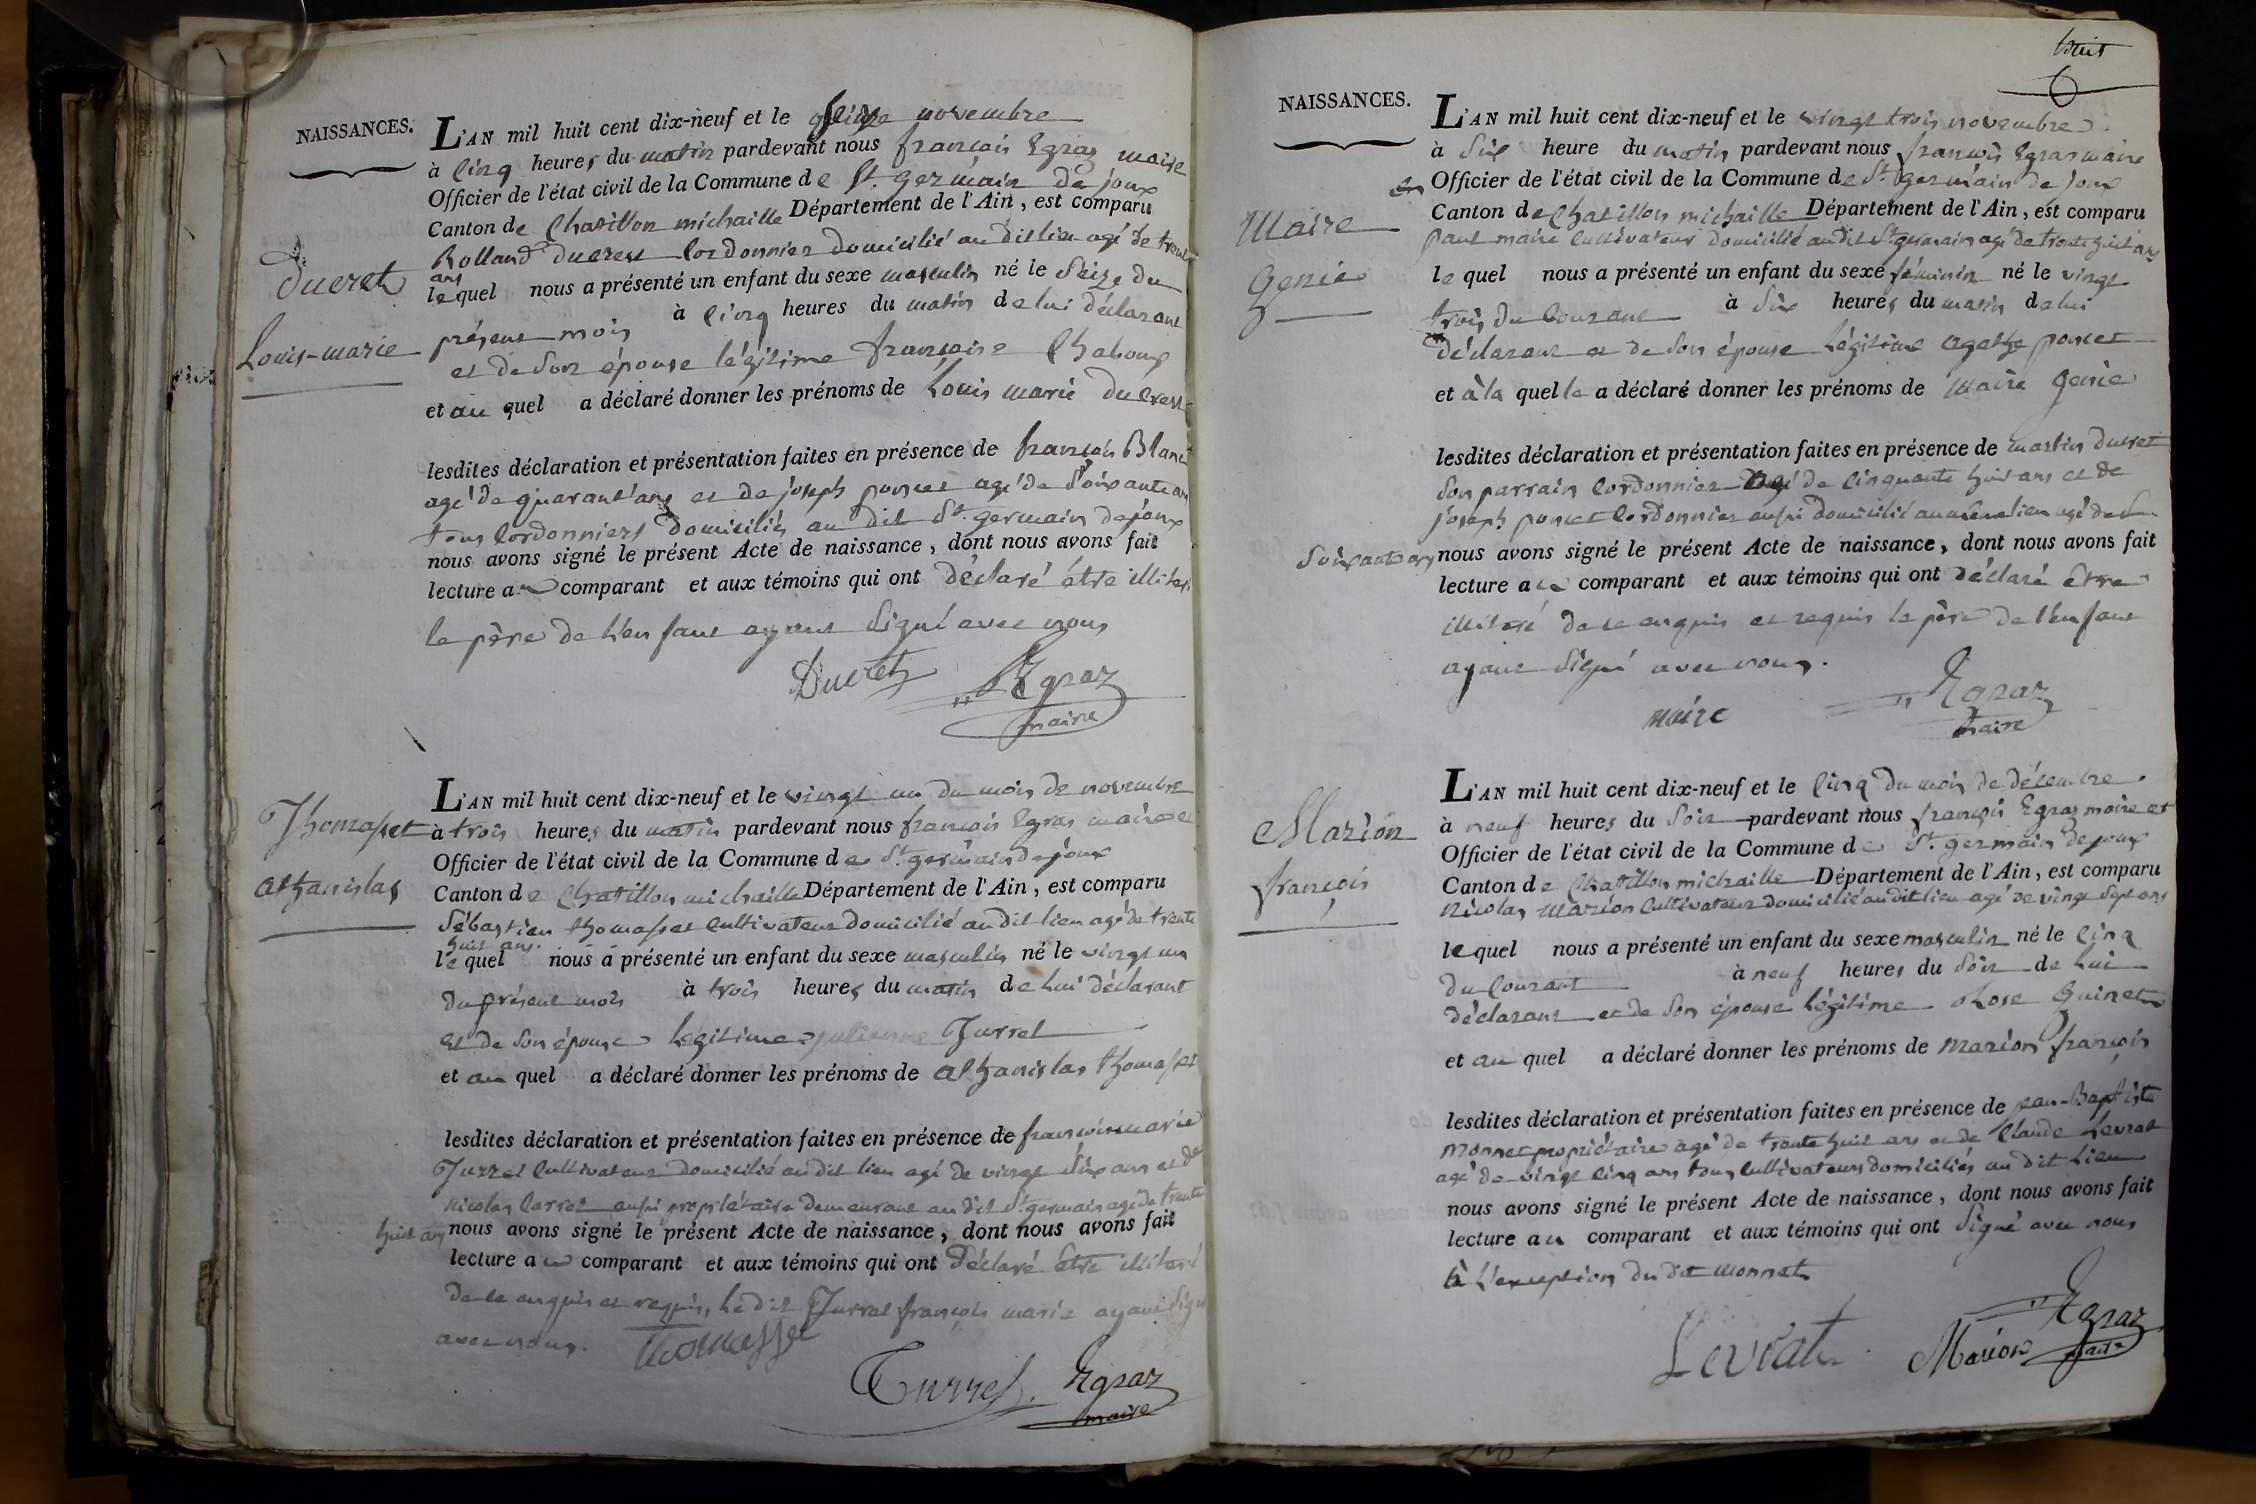 NAISSANCES.
Ducret
Louis-marie
L'AN mil huit cent dix-neuf et le seize novembre
à cinq heures du matin pardevant nous françois Egraz maire
Officier de l'état civil de la Commune de St. germain de joux
Canton de Chatillon michaille Département de l'Ain, est comparu
Rolland Ducrest Cordonnier domicilié au dit lieu agé de trente
ans
lequel nous a présenté un enfant du sexe masculin né le Seize du
présent mois à cinq heures du matin de lui déclarant
et de Son épouse légitime françoise Chaboux
et au quel a déclaré donner les prénoms de Louis marie Ducrest
lesdites déclaration et présentation faites en présence de françois Blanc
agé de quarant'ans et de joseph poncet agé de Soixante ans
tous Cordonniers domiciliés au dit St. germain de joux
nous avons signé le présent Acte de naissance, dont nous avons fait
lecture au comparant et aux témoins qui ont déclaré être illiteré
le père de l'enfant ayant Signé avec nous
Ducret Egraz
maire
Thomasset
athanislas
L'AN mil huit cent dix-neuf et le vingt un du mois de novembre
à trois heures du matin pardevant nous françois Egras maire et
Officier de l'état civil de la Commune de St. germain de joux
Canton de Chatillon michaille Département de l'Ain, est comparu
Sébastien thomasset Cultivateur domicilié au dit lieu agé de trente
huit ans.
le quel nous a présenté un enfant du sexe masculin né le vingt un
du présent mois à trois heures du matin de lui déclarant
et de Son épouse légitime julienne Turrel
et au quel a déclaré donner les prénoms de athanislas thomasset
lesdites déclaration et présentation faites en présence de françois marie
Turrel Cultivateur domicilié au dit lieu agé de vingt Six ans et de
nicolas Carret aussi propriétaire demeurant au dit St. germain agé de trente
huit ans nous avons signé le présent Acte de naissance, dont nous avons fait
lecture au comparant et aux témoins qui ont déclaré être illiteré
de ce enquis et requis, le dit Turrel françois marie ayant Signé
avec nous. thomasset
Turrel. Egraz
maire
huit
6
NAISSANCES.
Maire
Genie
L'AN mil huit cent dix-neuf et le vingt trois novembre
à Six heure du matin pardevant nous françois Egras maire
et Officier de l'état civil de la Commune de St. germain de joux
Canton de Chatillon michaille Département de l'Ain, est comparu
paul maire Cultivateur domicilié au dit St. germain agé de trente huit ans
le quel nous a présenté un enfant du sexe féminin né le vingt
trois du Courant à Six heures du matin de lui
déclarant et de Son épouse légitime agathe poncet
et à la quelle a déclaré donner les prénoms de Maire Genie
lesdites déclaration et présentation faites en présence de martin Ducret
Son parrain Cordonnier agé de Cinquante huit ans et de
joseph poncet Cordonnier aussi domicilié au même lieu agé de
Soixante ans nous avons signé le présent Acte de naissance, dont nous avons fait
lecture au comparant et aux témoins qui ont déclaré être
illiteré de ce enquis et requis le père de l'enfant
ayant Signé avec nous.
maire Egraz
maire
Marion
françois
L'AN mil huit cent dix-neuf et le Cinq du mois de décembre
à neuf heures du Soir pardevant nous françois Egraz maire et
Officier de l'état civil de la Commune de St. germain de joux
Canton de Chatillon michaille Département de l'Ain, est comparu
Nicolas Marion Cultivateur domicilié au dit lieu agé de vingt Sept ans
lequel nous a présenté un enfant du sexe masculin né le Cinq
du Courant à neuf heures du Soir de lui
déclarant et de Son épouse légitime Rose Guinet
et au quel a déclaré donner les prénoms de Marion françois
lesdites déclaration et présentation faites en présence de jean-Baptiste
Monnet propriétaire agé de trente huit ans et de Claude Levrat
agé de vingt Cinq ans tous Cultivateurs domiciliés au dit lieu
nous avons signé le présent Acte de naissance, dont nous avons fait
lecture au comparant et aux témoins qui ont Signé avec nous
à l'exception du dit Monnet
Levrat Marion Egraz
maire